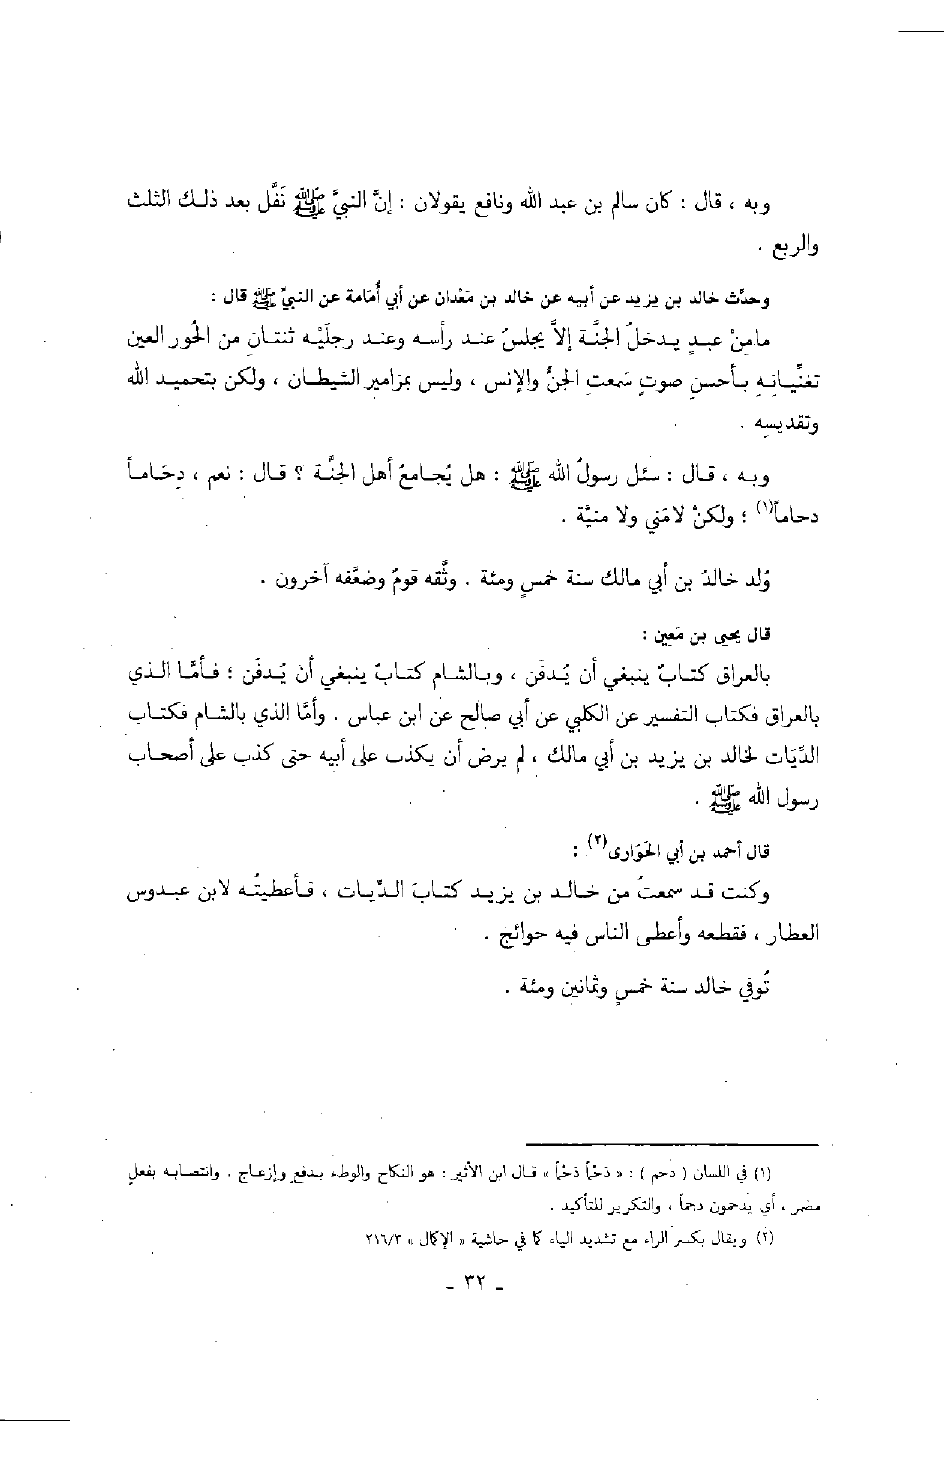 وبه ، قال : كان سالم بن عبد الله ونافع يقولان : إنَّ النبيَّ ﷺ نَفَّل بعد ذلك الثلث
والربع .
وحدَّث خالد بن يزيد عن أبيه عن خالد بن مَعْدان عن أبي أُمَامة عن النبيِّ ﷺ قال :
مامِنْ عبدٍ يدخلُ الجنَّة إلاَّ يجلسُ عند رأسه وعند رجلَيْه ثنتان من الحُور العين
تغنِّيانِهِ بأحسنِ صوتٍ سَمعت الجنُّ والإنس ، وليس بمزامير الشيطان ، ولكن بتحميد الله
وتقديسِه .
وبه ، قال : سئل رسولُ الله ﷺ : هل يُجامعُ أهل الجنَّة ؟ قال : نعم ، دِحَاماً
دحاماً(١) ؛ ولكنْ لامَني ولا منيَّة .
وُلد خالدُ بن أبي مالك سنة خمسٍ ومئة . وثَّقه قومٌ وضعَّفه آخرون .
قال يحيى بن مَعين :
بالعراق كتابٌ ينبغي أن يُدفَن ، وبالشام كتابٌ ينبغي أن يُدفَن ؛ فأمَّا الذي
بالعراق فكتاب التفسير عن الكلبي عن أبي صالح عن ابن عباس . وأمَّا الذي بالشام فكتاب
الدِّيَات لخالد بن يزيد بن أبي مالك ، لم يرض أن يكذب على أبيه حتى كذب على أصحاب
رسول الله ﷺ .
قال أحمد بن أبي الحَوَارى(٢) :
وكنت قد سمعتُ من خالد بن يزيد كتابَ الدِّيات ، فأعطيتُه لابن عبدوس
العطار ، فقطعه وأعطى الناس فيه حوائج .
تُوفي خالد سنة خمسٍ وثمانين ومئة .
(١) في اللسان ( دحم ) : « دَحْماً دَحْماً » قال ابن الأثير : هو النكاح والوطء بدفع وإزعاج . وانتصابه بفعلٍ
مضمر ، أي يدحمون دحماً ، والتكرير للتأكيد .
(٢) ويقال بكسر الراء مع تشديد الياء كما في حاشية « الإكمال » ٢١٦/٣
ـ ٣٢ ـ